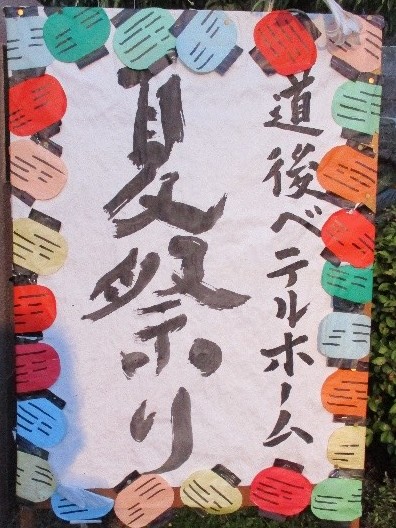 道後ベテルホーム
夏祭り